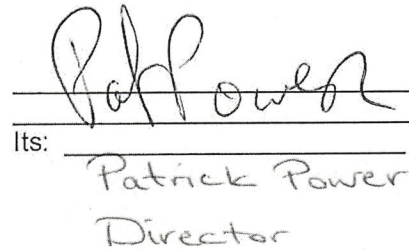 Pat Power
Its:
Patrick Power
Director